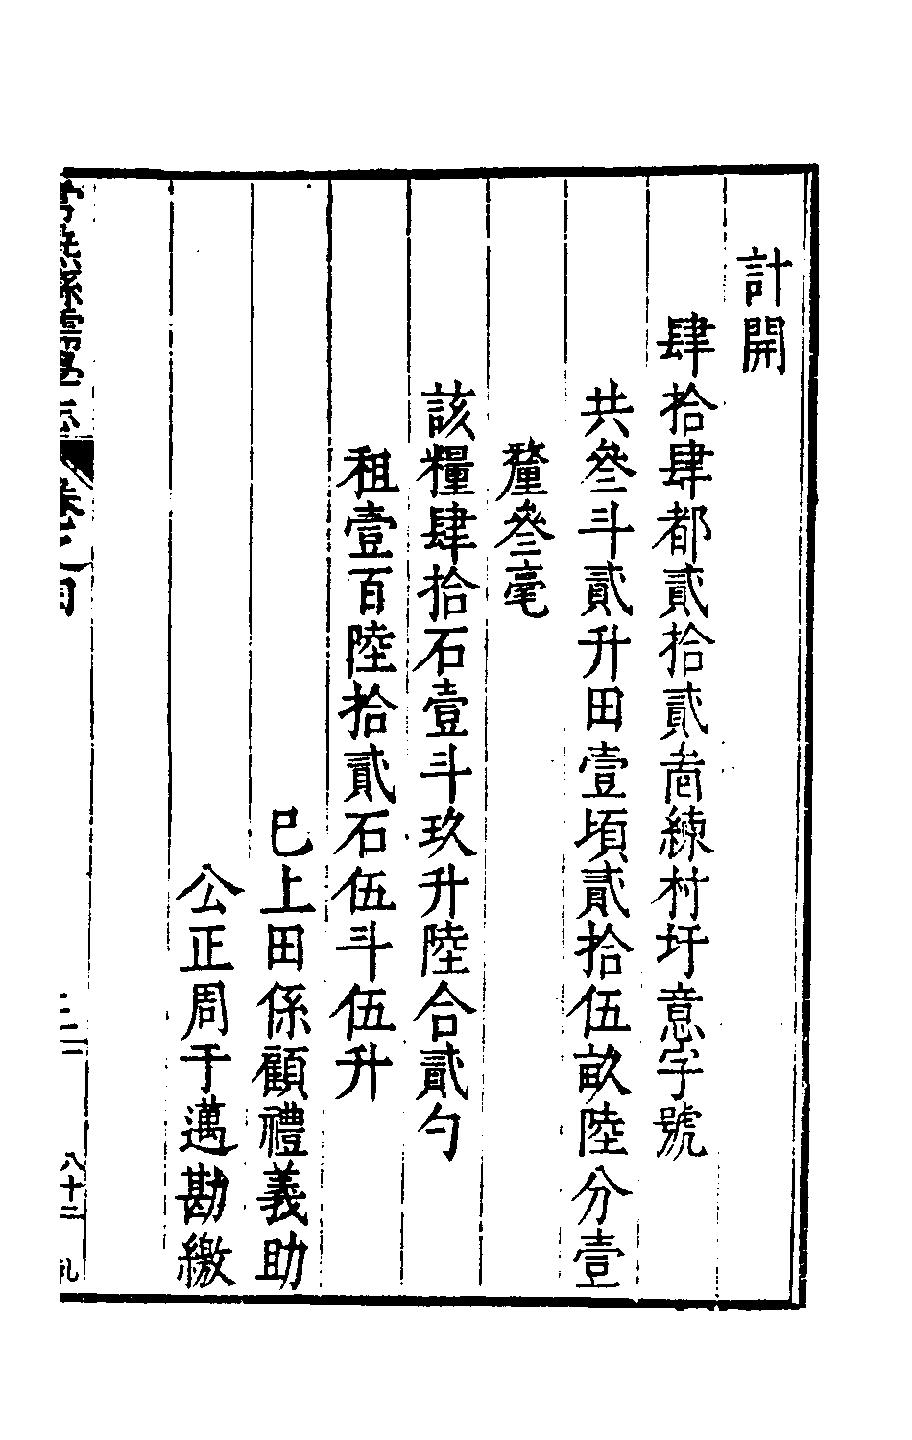 計開
肆拾肆都貳拾貳啚練村圩意字號
共叄斗貳升田壹頃貳拾伍畝陸分壹
釐叄毫
該糧肆拾石壹斗玖升陸合貳勺
租壹百陸拾貳石伍斗伍升
巳上田係顧禮義助
公正周于邁勘繳
常熟縣儒學志
八十二